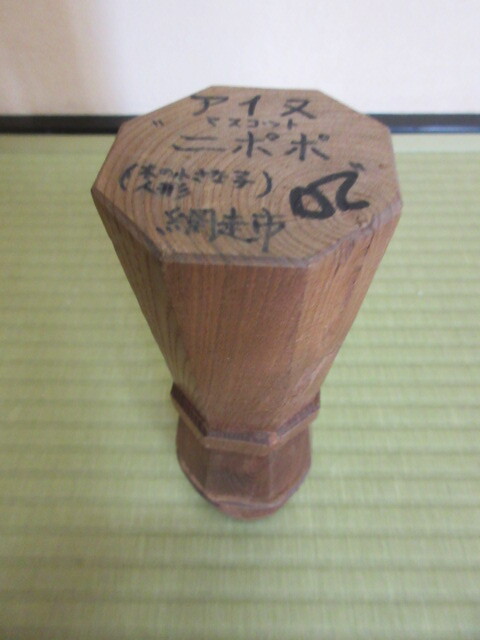 アイヌ
マスコット
"ニポポ"
(木の小さな子
人形)
網走市